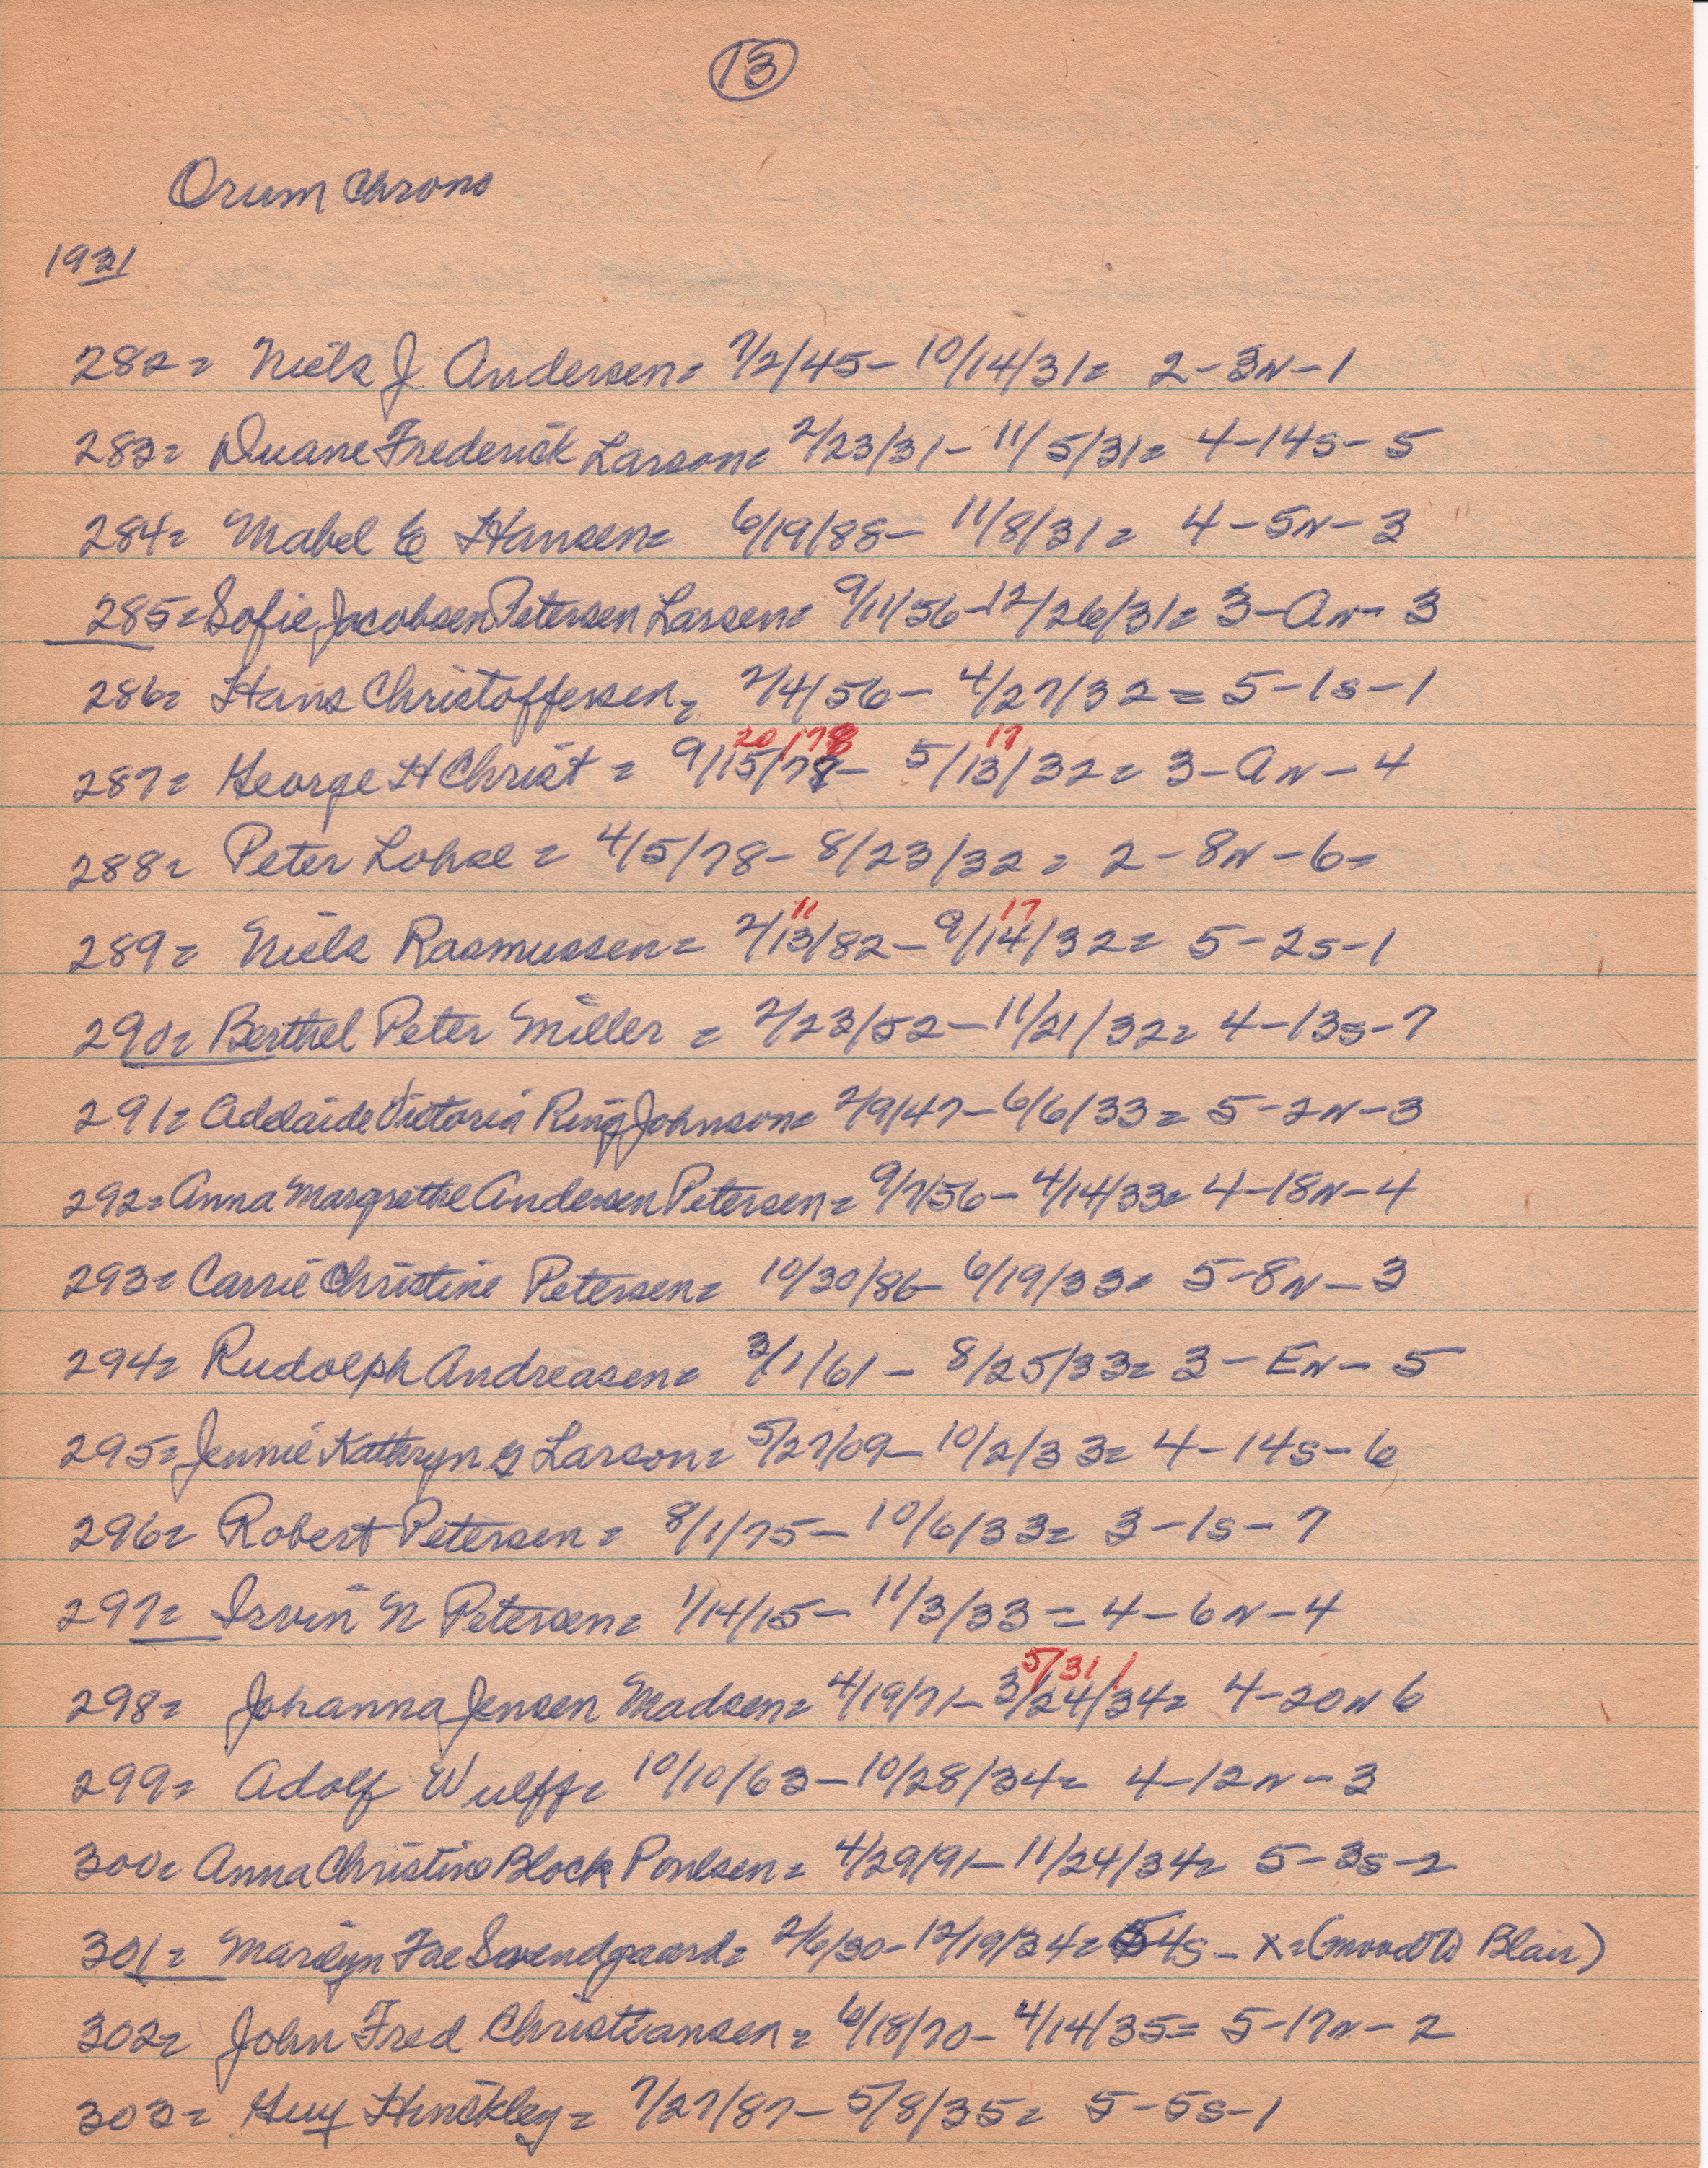 13
Orum Chrono
1931
282= Niels J Andersen= 7/2/45- 10/14/31= 2-3N-1
283= Duane Frederick Larson= 2/23/31- 11/5/31= 4-14S-5
284= Mabel E Hansen= 6/19/88- 11/8/31= 4-5N-3
285= Sofie Jacobsen Petersen Larsen= 9/11/56-12/26/31= 3-AN-3
286= Hans Christoffersen= 2/4/56- 4/27/32= 5-1S-1
20/178 17
287= George H Christ= 9/15/78- 5/13/32= 3-AN-4
288= Peter Lohse= 4/5/78- 8/23/32= 2-8N-6=
11 17
289= Niels Rasmussen= 2/13/82- 9/14/32= 5-2S-1
290= Berthel Peter Miller= 2/23/52-11/21/32= 4-13S-7
291= Adelaide Victoria Ring Johnson= 2/9/47-6/6/33= 5-2N-3
292= Anna Margrethe Andersen Petersen= 9/7/56-4/14/33= 4-18N-4
293= Carrie Christine Petersen= 10/30/86- 6/19/33= 5-8N-3
294= Rudolph Andreasen= 3/1/61- 8/25/33= 3-EN-5
295= Jennie Kathryn G Larson= 5/27/09- 10/2/33= 4-14S-6
296= Robert Petersen= 8/1/75- 10/6/33= 3-1S-7
297= Irvin N Petersen= 1/14/15- 11/3/33= 4-6N-4
5/31/
298= Johanna Jensen Madsen= 4/19/71- 3/24/34= 4-20N 6
299= Adolf Wulff= 10/10/63-10/28/34= 4-12N-3
300= Anna Christine Block Poulsen= 4/29/91- 11/24/34= 5-3S-2
301= Marilyn Fae Swendgaard= 2/6/30- 12/19/34= 54S-X=(moved to Blair)
302= John Fred Christiansen= 6/18/70- 4/14/35= 5-17N-2
303= Guy Hinckley= 7/27/87- 5/8/35= 5-5S-1